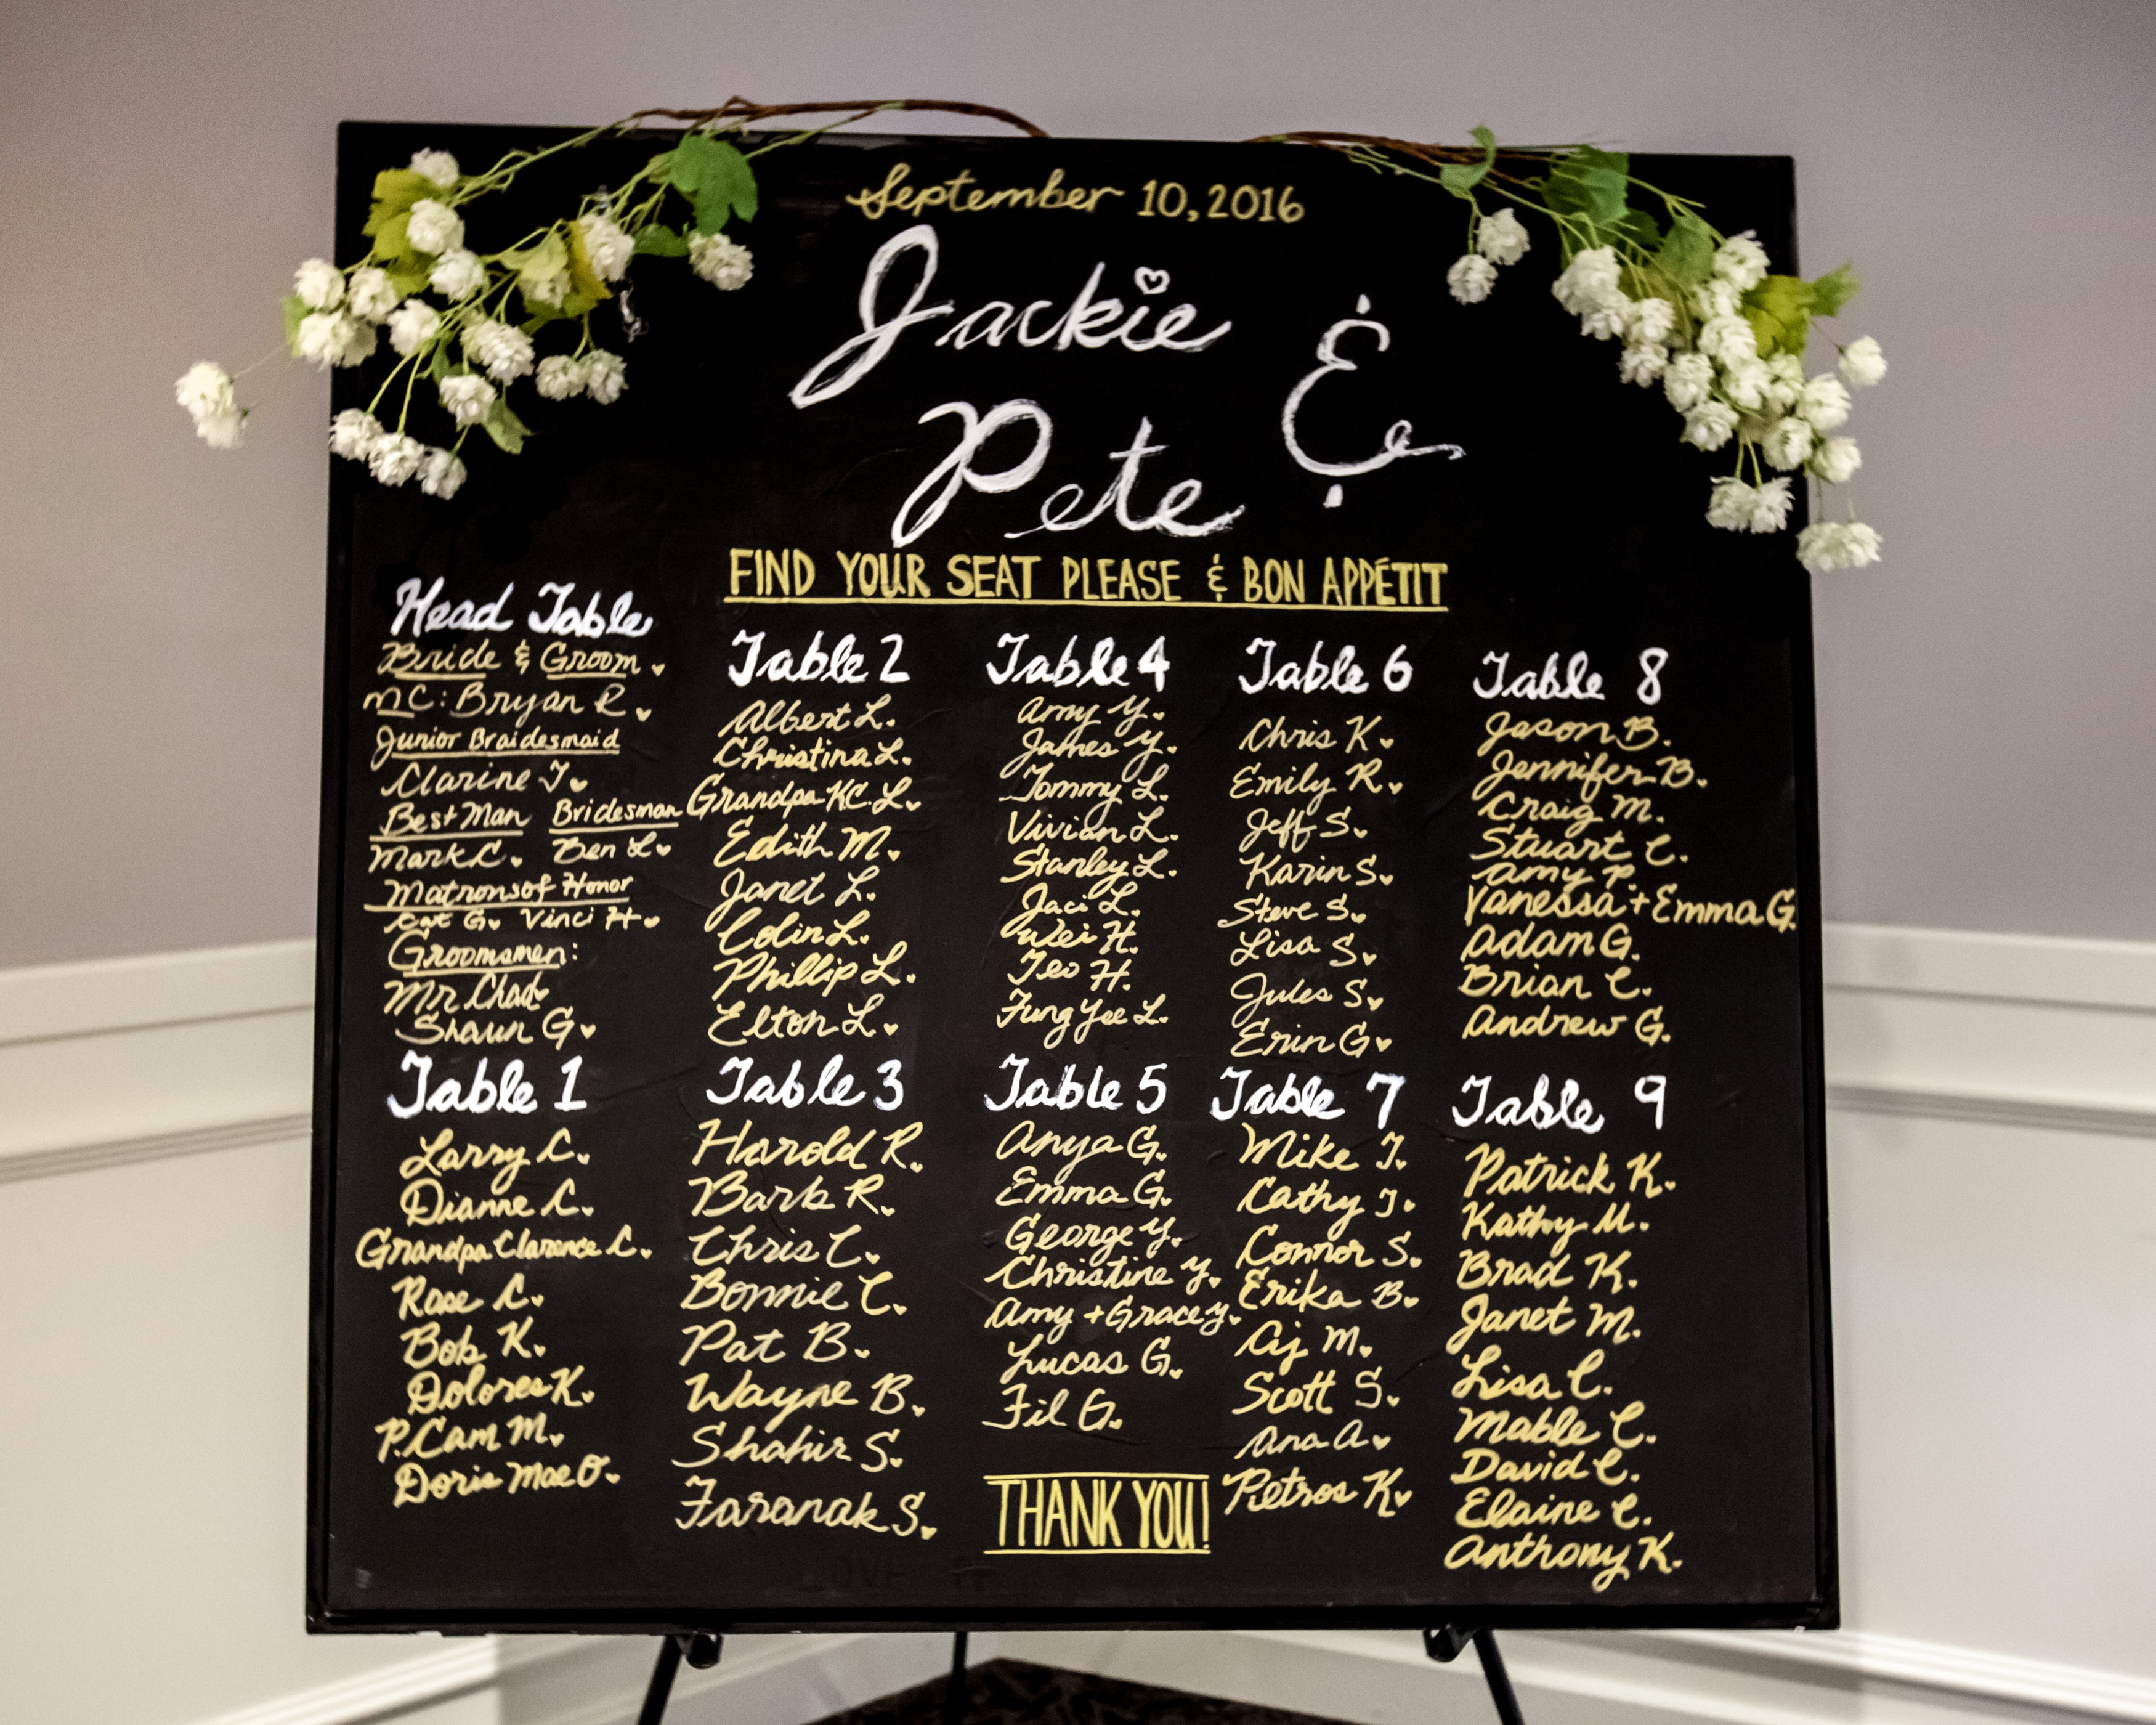 September 10, 2016
Jackie &
Pete
FIND YOUR SEAT PLEASE & BON APPÉTIT
Head Table
Bride & Groom
MC: Bryan R.
Junior Braidesmaid
Clarine T.
Best Man Bridesman
Mark C. Ben L.
Matrons of Honor
Cat G. Vinci H.
Groomsmen:
Mr Chad
Shaun G.
Table 1
Larry C.
Dianne C.
Grandpa Clarence C.
Rose C.
Bob K.
Dolores K.
P. Cam M.
Doris Mae O.
Table 2
Albert L.
Christina L.
Grandpa K.C. L.
Edith M.
Janet L.
Colin L.
Phillip L.
Elton L.
Table 3
Harold R.
Barb R.
Chris C.
Bonnie C.
Pat B.
Wayne B.
Shahir S.
Faranak S.
Table 4
Amy Y.
James Y.
Tommy L.
Vivian L.
Stanley L.
Jaci L.
Wei H.
Teo H.
Fung Yee L.
Table 5
Anya G.
Emma G.
George Y.
Christine Y.
Amy + Grace Y.
Lucas G.
Fil G.
THANK YOU!
Table 6
Chris K.
Emily R.
Jeff S.
Karin S.
Steve S.
Lisa S.
Jules S.
Erin G.
Table 7
Mike T.
Cathy T.
Connor S.
Erika B.
Cj M.
Scott S.
Ana A.
Petros K.
Table 8
Jason B.
Jennifer B.
Craig M.
Stuart C.
Amy P.
Vanessa + Emma G.
Adam G.
Brian C.
Andrew G.
Table 9
Patrick K.
Kathy U.
Brad K.
Janet M.
Lisa C.
Mable C.
David C.
Elaine C.
Anthony K.